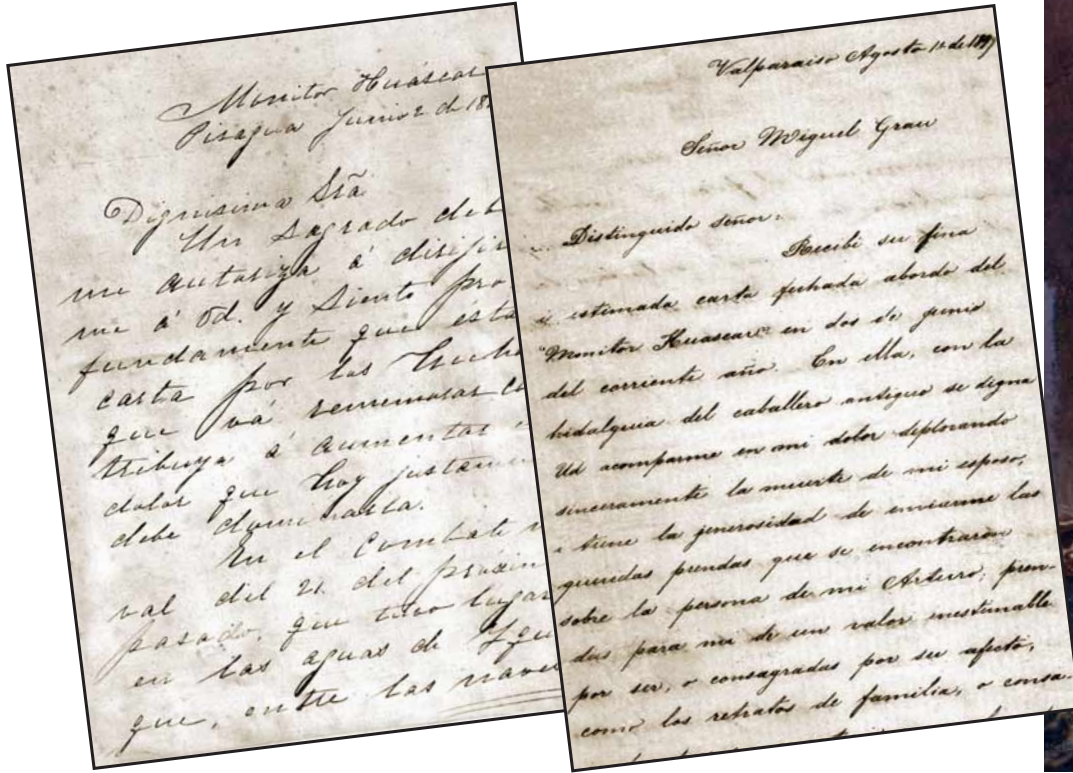 Monitor Huáscar
Pisagua Junio 2 de 18
Dignisima Sra
Un Sagrado deb
me autoriza á dirijir
me á Ud. y siento pro
fundamente que ésta
carta por las lucha
que vá rememorar co
tribuya á aumentar
dolor que hoy justame
debe dominarla.
En el combate
val del 21 del próxim
pasado, que tuvo lugar
en las aguas de Iqui
que, entre las nave
Valparaiso Agosto 1º de 1879
Señor Miguel Grau
Distinguido señor:
Recibi su fina
i estimada carta fechada abordo del
"Monitor Huascar" en dos de junio
del corriente año. En ella, con la
hidalguia del caballero antiguo se digna
Ud acompañarme en mi dolor deplorando
sinceramente la muerte de mi esposo,
i tiene la jenerosidad de enviarme las
queridas prendas que se encontraron
sobre la persona de mi Arturo; pren-
das para mi de un valor inestimable
por ser, o consagradas por su afecto,
como los retratos de familia, o consa-